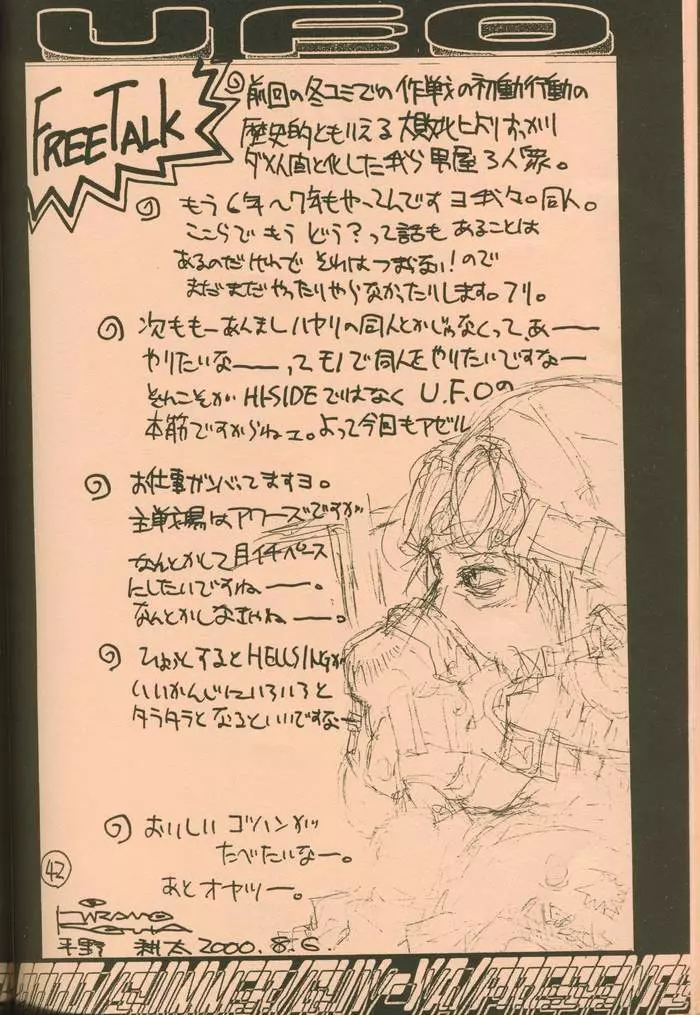 UFO
FREE TALK
前回の冬コミでの作戦の初動行動の
歴史的ともいえる大敗北によりすっかり
ダメ人間と化した我ら男屋3人衆。
もう6年〜7年もやってんですヨ我々。同人。
ここらでもうどう?って話もあることは
あるのだけれどそれはつまらない!ので
まだまだやったりやらなかったりします。フリ。
次もも一あんましハヤリの同人とかじゃなくって、あ――
やりたいな――ってモノで同人をやりたいですなー
それこそがHI-SIDEではなく U.F.Oの
本筋ですからねェ。よって今回もアゼル
お仕事ガンバってますヨ。
主戦場はアワーズですが
なんとかして月イチペース
にしたいですね――。
なんとかしなきゃね――。
ひょっとするとHELLSINGが
いいかんじにいろいろと
タラタラとなるといいですなー
おいしいゴハンが
たべたいなー。
あとオヤツー。
42
HIRANO KOUTA
平野 耕太 2000. 8. 6.